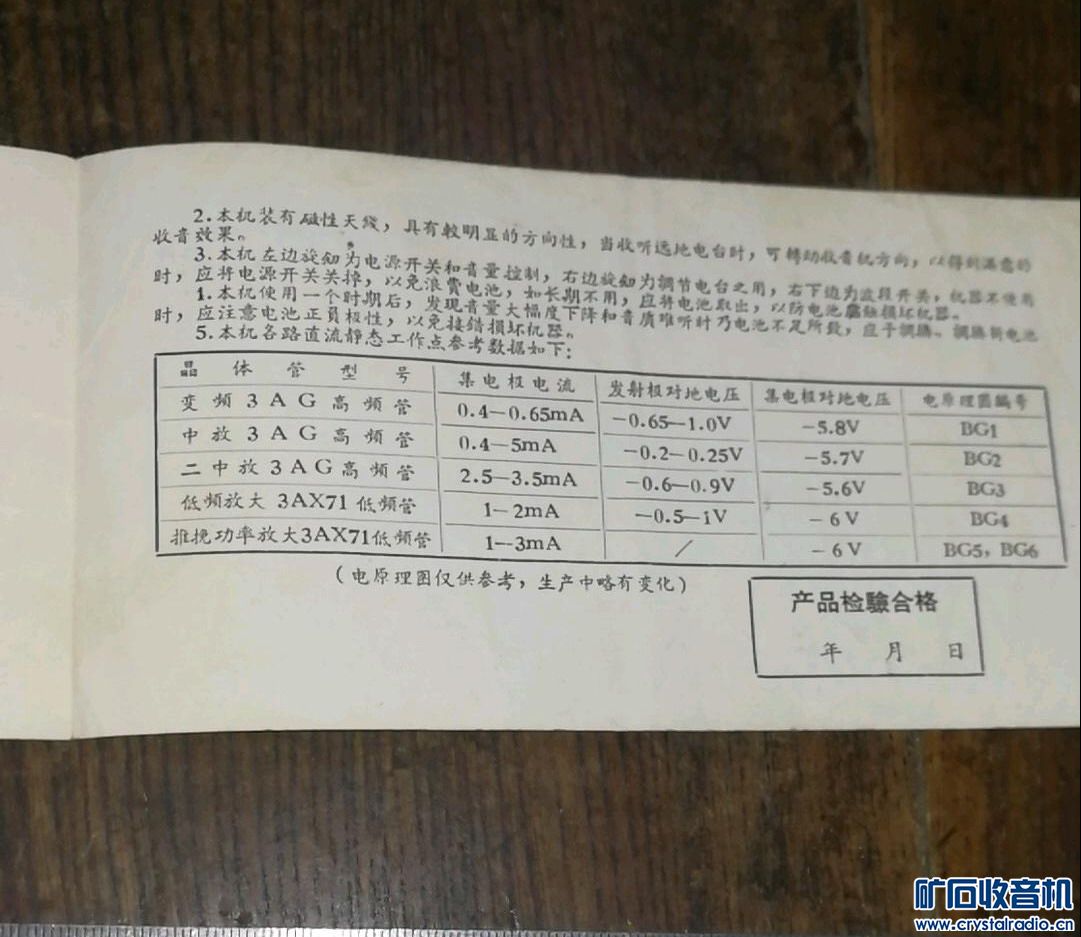 2.本机装有磁性天綫，具有較明显的方向性，当收听远地电台时，可轉动收音机方向，以得到滿意的
收音效果。
3.本机左边旋鈕为电源开关和音量控制，右边旋鈕为調节电台之用，右下边为波段开关，机器不使用
时，应将电源开关关掉，以免浪費电池，如长期不用，应将电池取出，以防电池腐蝕損坏机器。
1.本机使用一个时期后，发现音量大幅度下降和音质难听时乃电池不足所致，应予調換。調換新电池
时，应注意电池正負极性，以免接錯損坏机器。
5.本机各路直流静态工作点参考数据如下：
晶体管型号 集电极电流 发射极对地电压 集电极对地电压 电原理图編号
变頻3AG高頻管 0.4—0.65mA —0.65—1.0V —5.8V BG1
中放3AG高頻管 0.4—5mA —0.2—0.25V —5.7V BG2
二中放3AG高頻管 2.5—3.5mA —0.6—0.9V —5.6V BG3
低頻放大 3AX71低頻管 1—2mA —0.5—1V —6V BG4
推挽功率放大3AX71低頻管 1—3mA / —6V BG5，BG6
（电原理图仅供参考，生产中略有变化）
产品检驗合格
年 月 日
矿石收音机
www.crystalradio.cn